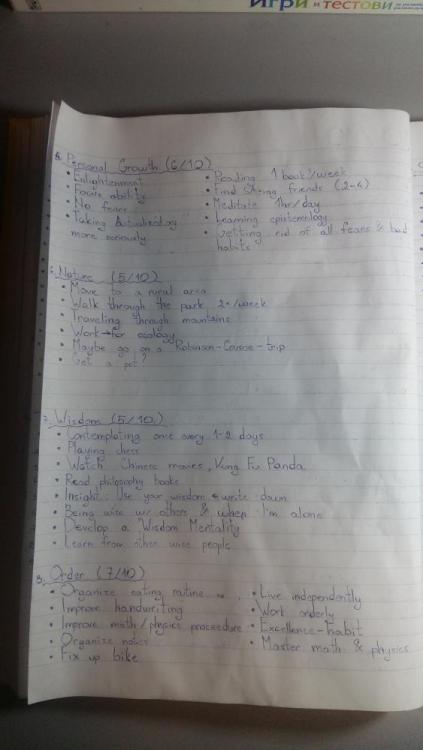 Игри и тестови
5. Personal Growth (6/10)
• Enlightenment
• Focus ability
• No fears
• Taking Actualized.org
more seriously
• Reading 1 book/week
• Find friends (2-4)
• Meditate 1hr/day
• Learning epistemology
• Getting rid of all fears & bad
habits
6. Nature (5/10)
• Move to a rural area
• Walk through the park 2x/week
• Traveling through mountains
• Work for ecology
• Maybe go on a Robinson-Crusoe-trip
• Get a pet?
7. Wisdom (5/10)
• Contemplating once every 1-2 days
• Playing chess
• Watch Chinese movies, Kung Fu Panda
• Read philosophy books
• Insight: Use your wisdom & write down
• Being wise w/ others & when I'm alone
• Develop a Wisdom Mentality
• Learn from other wise people
8. Order (7/10)
• Organize eating routine
• Improve handwriting
• Improve math/physics procedure
• Organize notes
• Fix up bike
• Live independently
• Work orderly
• Excellence-habit
• Master math & physics